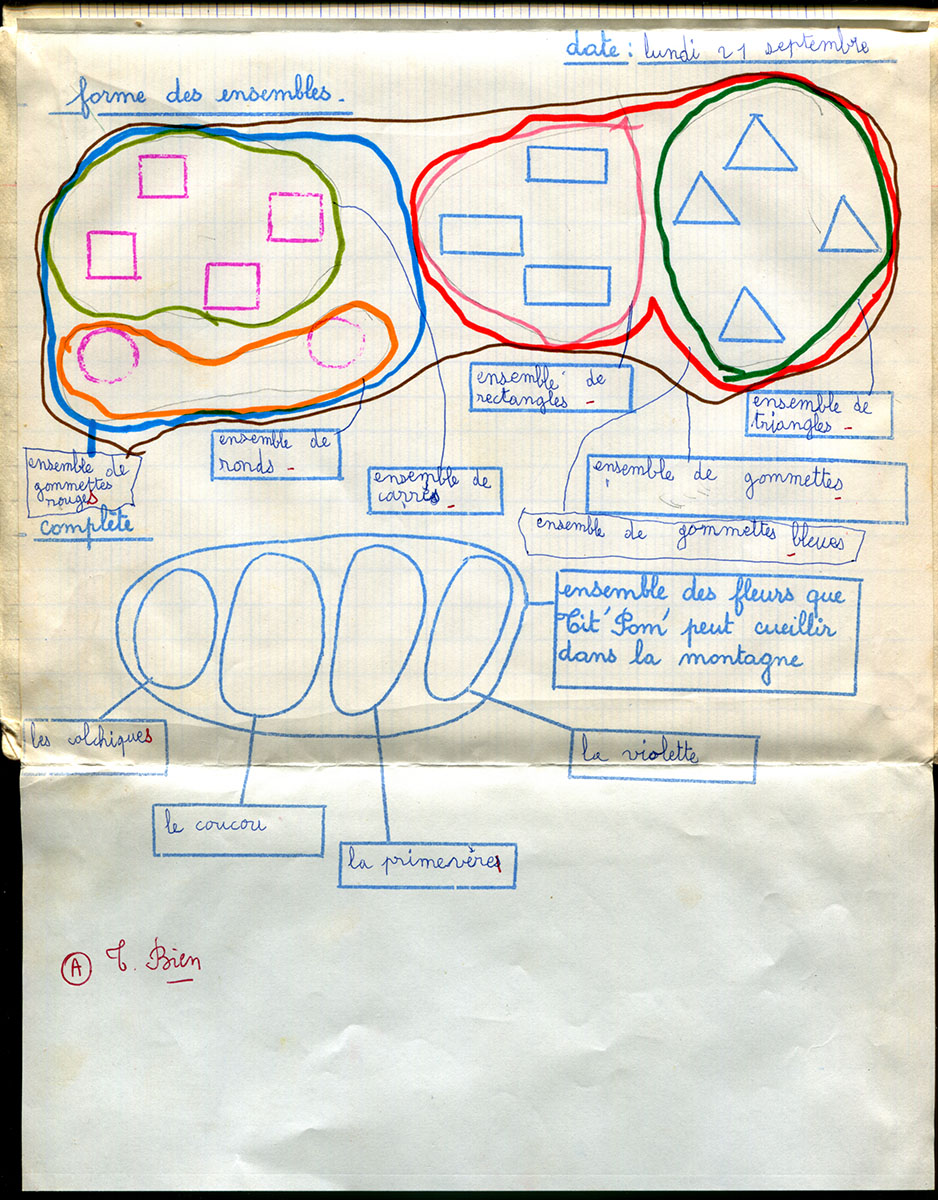 date : lundi 21 septembre
forme des ensembles.
ensemble de
rectangles
ensemble de
triangles
ensemble de
ronds
ensemble de
gommettes
rouges
ensemble de
carrés
ensemble de gommettes
ensemble de gommettes bleues
complète
ensemble des fleurs que
Tit'Pom' peut cueillir
dans la montagne
les colchiques
la violette
le coucou
la primevère
A T. Bien